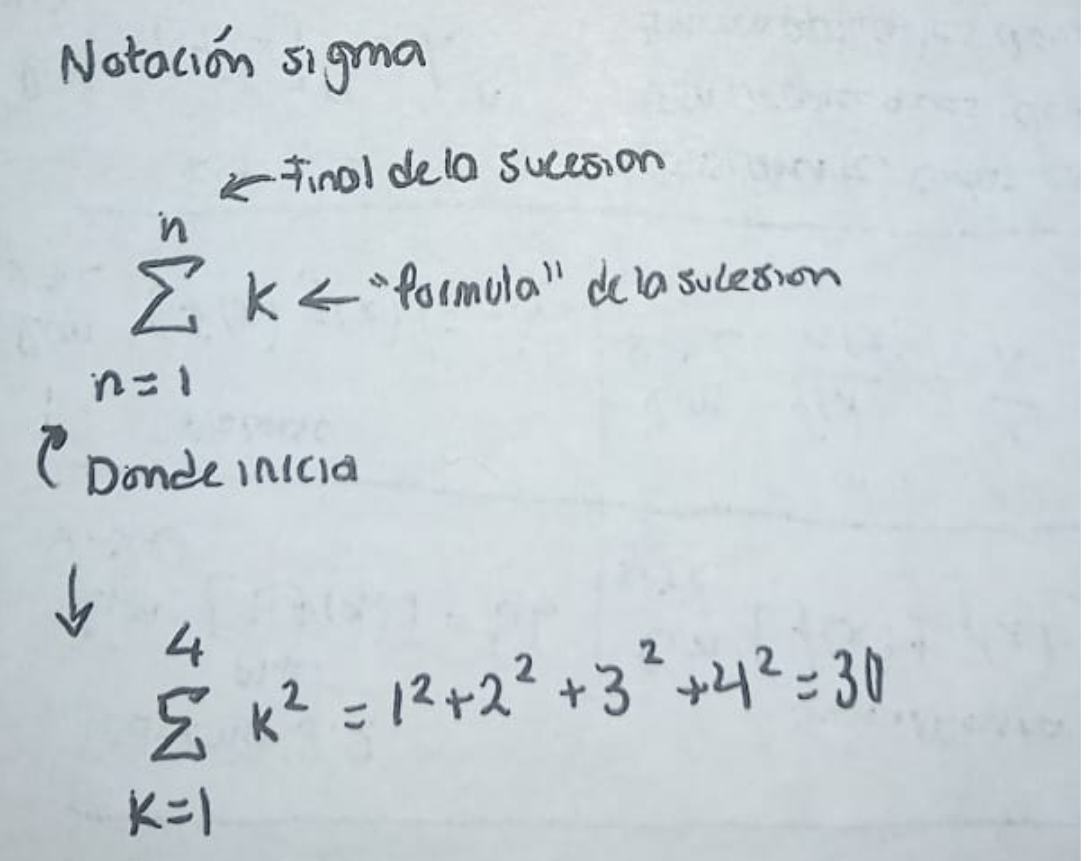 Notación sigma
← Final de la sucesion
n
Σ k ← "formula" de la sucesion
n=1
Donde inicia
↓
4
Σ k² = 1²+2²+3²+4²=30
K=1